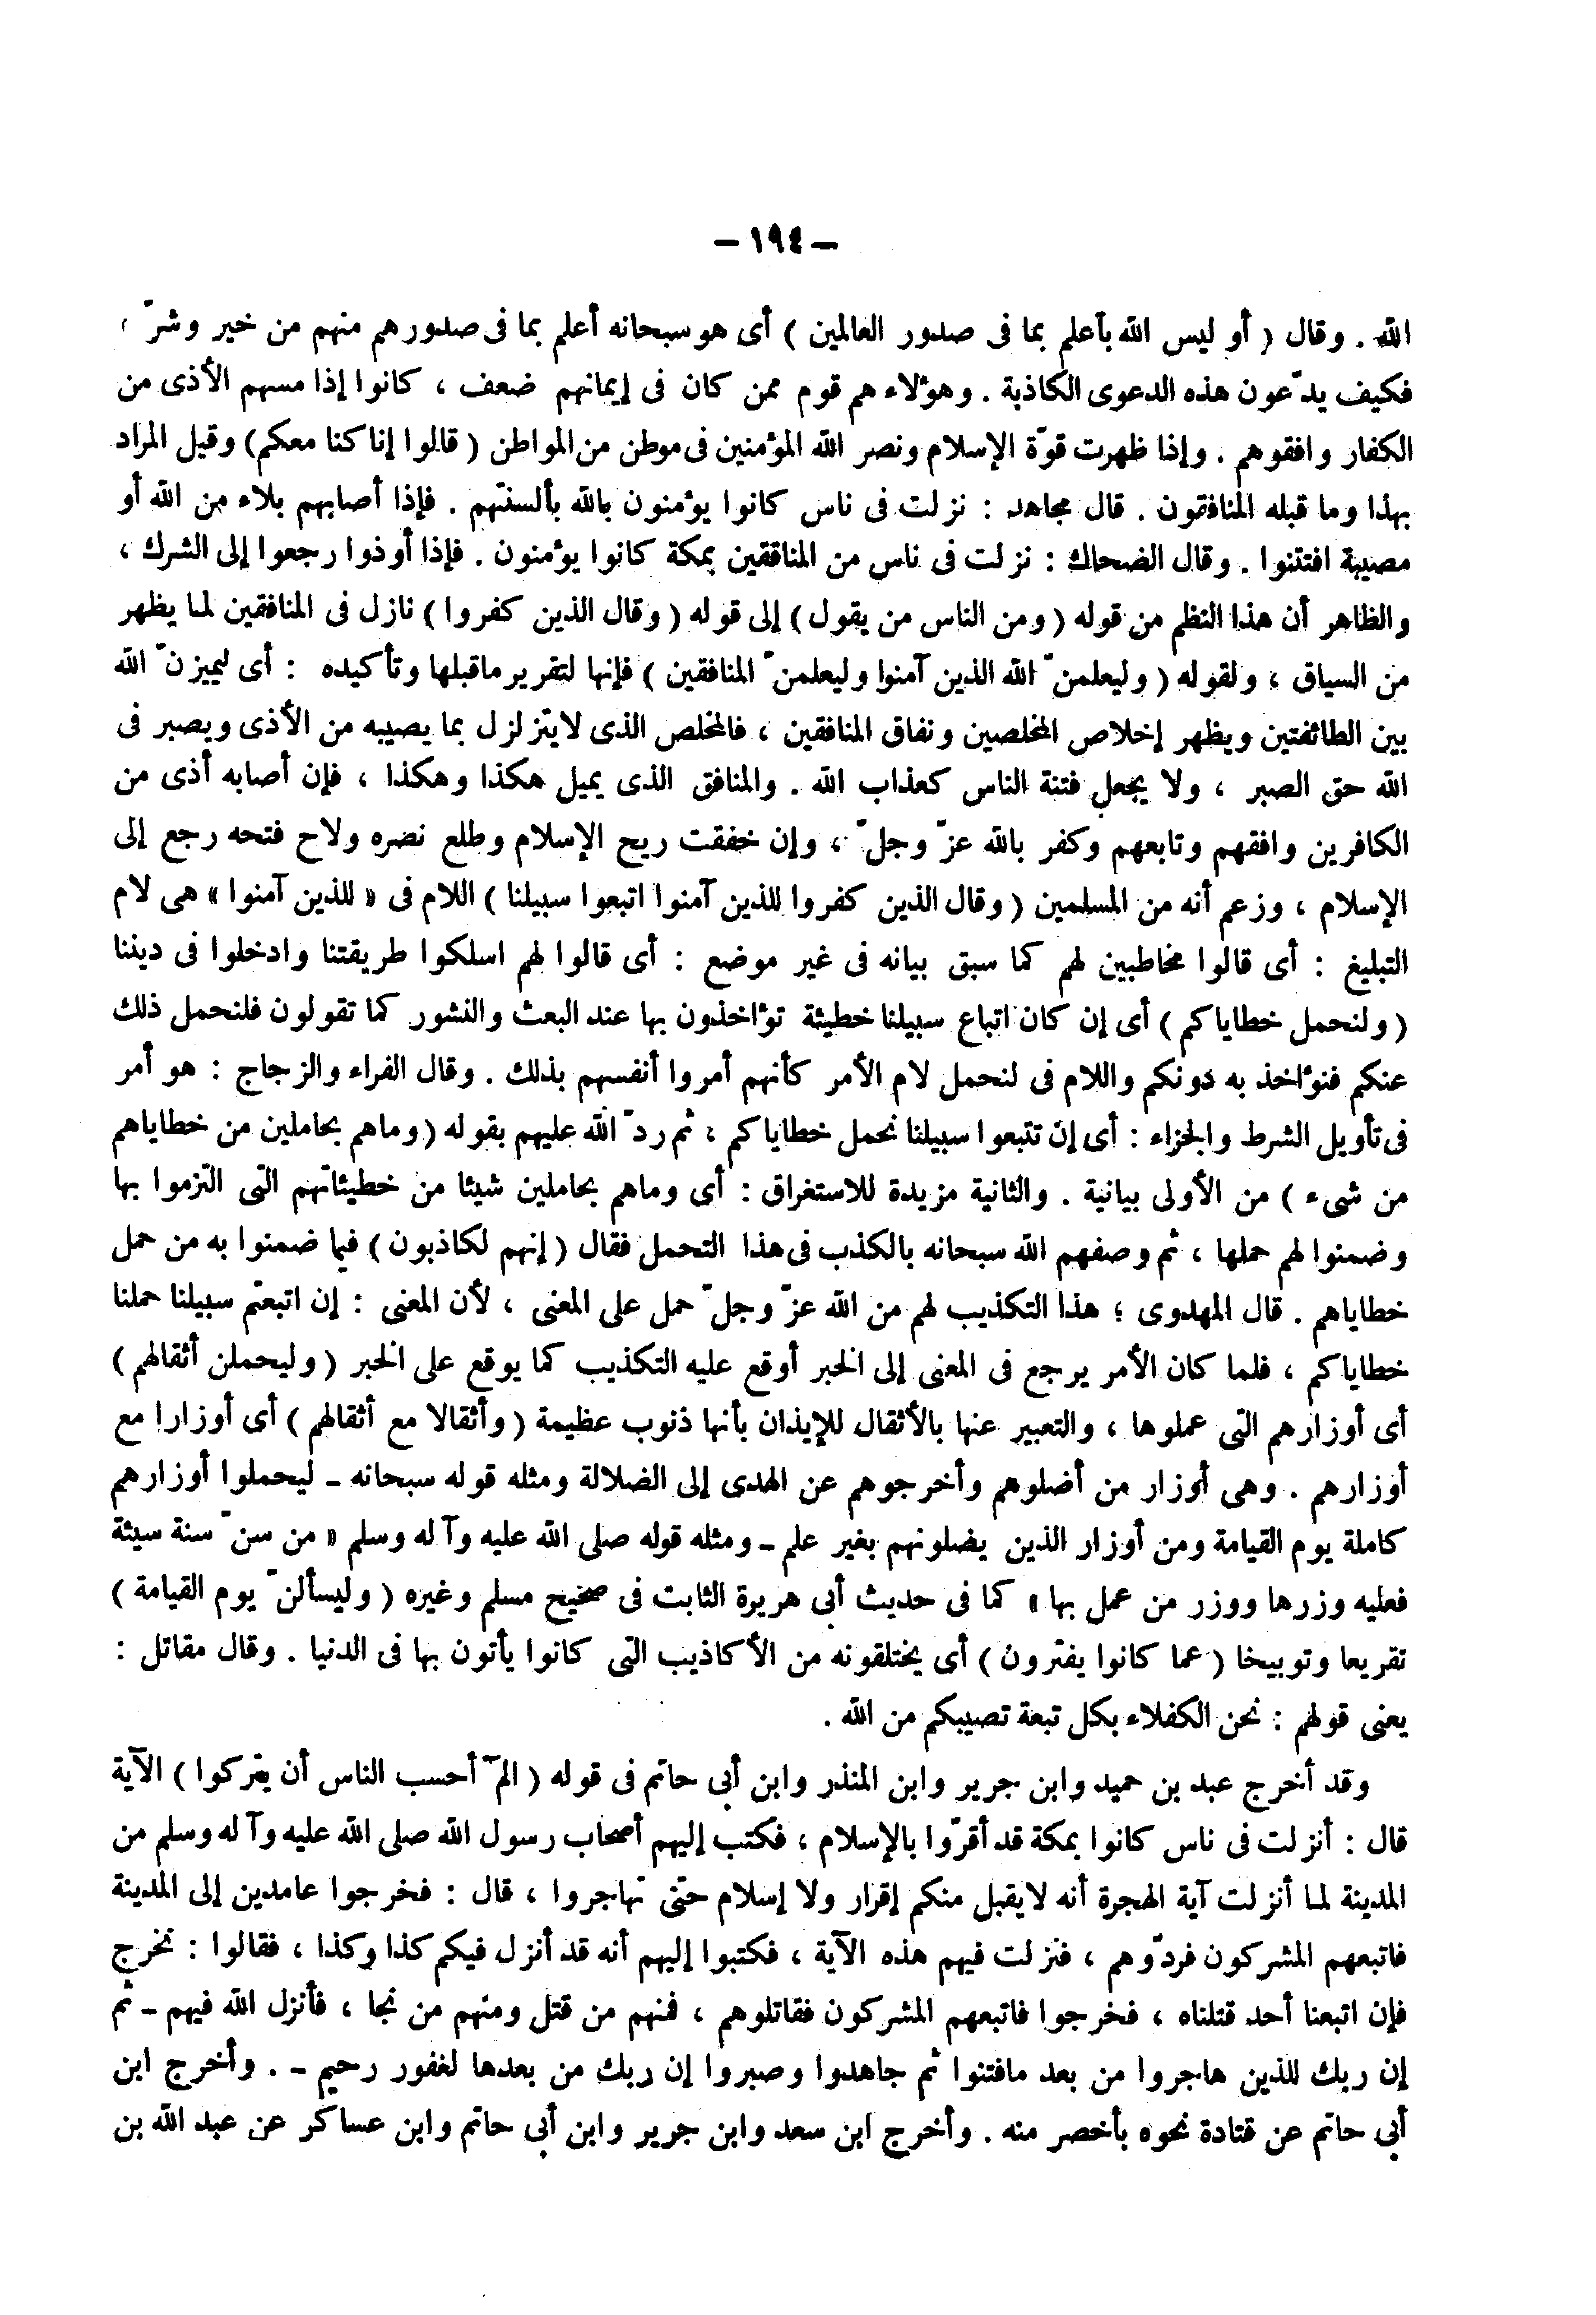 – ١٩٤ –
الله . وقال ( أو ليس الله بأعلم بما فى صدور العالمين ) أى هو سبحانه أعلم بما فى صدورهم منهم من خير وشرّ ،
فكيف يدّعون هذه الدعوى الكاذبة . وهؤلاء هم قوم ممن كان فى إيمانهم ضعف ، كانوا إذا مسهم الأذى من
الكفار وافقوهم . وإذا ظهرت قوّة الإسلام ونصر الله المؤمنين فى موطن من المواطن ( قالوا إنا كنا معكم) وقيل المراد
بهذا وما قبله المنافقون . قال مجاهد : نزلت فى ناس كانوا يؤمنون بالله بألسنتهم . فإذا أصابهم بلاء من الله أو
مصيبة افتتنوا . وقال الضحاك : نزلت فى ناس من المنافقين بمكة كانوا يؤمنون . فإذا أوذوا رجعوا إلى الشرك ،
والظاهر أن هذا النظم من قوله ( ومن الناس من يقول ) إلى قوله ( وقال الذين كفروا ) نازل فى المنافقين لما يظهر
من السياق ، ولقوله ( وليعلمنّ الله الذين آمنوا وليعلمنّ المنافقين ) فإنها لتقرير ماقبلها وتأكيده : أى ليميزنّ الله
بين الطائفتين ويظهر إخلاص المخلصين ونفاق المنافقين ، فالمخلص الذى لايتزلزل بما يصيبه من الأذى ويصبر فى
الله حق الصبر ، ولا يجعل فتنة الناس كعذاب الله . والمنافق الذى يميل هكذا وهكذا ، فإن أصابه أذى من
الكافرين وافقهم وتابعهم وكفر بالله عزّ وجلّ ، وإن خفقت ريح الإسلام وطلع نصره ولاح فتحه رجع إلى
الإسلام ، وزعم أنه من المسلمين ( وقال الذين كفروا للذين آمنوا اتبعوا سبيلنا ) اللام فى « للذين آمنوا » هى لام
التبليغ : أى قالوا مخاطبين لهم كما سبق بيانه فى غير موضع : أى قالوا لهم اسلكوا طريقتنا وادخلوا فى ديننا
( ولنحمل خطاياكم ) أى إن كان اتباع سبيلنا خطيئة تؤاخذون بها عند البعث والنشور كما تقولون فلنحمل ذلك
عنكم فنؤاخذ به دونكم واللام فى لنحمل لام الأمر كأنهم أمروا أنفسهم بذلك . وقال الفراء والزجاج : هو أمر
فى تأويل الشرط والجزاء : أى إن تتبعوا سبيلنا نحمل خطاياكم ، ثم ردّ الله عليهم بقوله (وماهم بحاملين من خطاياهم
من شىء ) من الأولى بيانية . والثانية مزيدة للاستغراق : أى وماهم بحاملين شيئا من خطيئاتهم التى التزموا بها
وضمنوا لهم حملها ، ثم وصفهم الله سبحانه بالكذب فى هذا التحمل فقال ( إنهم لكاذبون ) فيما ضمنوا به من حمل
خطاياهم . قال المهدوى ؛ هذا التكذيب لهم من الله عزّ وجلّ حمل على المعنى ، لأن المعنى : إن اتبعتم سبيلنا حملنا
خطاياكم ، فلما كان الأمر يرجع فى المعنى إلى الخبر أوقع عليه التكذيب كما يوقع على الخبر ( وليحملن أثقالهم )
أى أوزارهم التى عملوها ، والتعبير عنها بالأثقال للإيذان بأنها ذنوب عظيمة ( وأثقالا مع أثقالهم ) أى أوزارا مع
أوزارهم . وهى أوزار من أضلوهم وأخرجوهم عن الهدى إلى الضلالة ومثله قوله سبحانه ـ ليحملوا أوزارهم
كاملة يوم القيامة ومن أوزار الذين يضلونهم بغير علم ـ ومثله قوله صلى الله عليه وآله وسلم « من سنّ سنة سيئة
فعليه وزرها ووزر من عمل بها » كما فى حديث أبى هريرة الثابت فى صحيح مسلم وغيره ( وليسألنّ يوم القيامة )
تقريعا وتوبيخا ( عما كانوا يفترون ) أى يختلقونه من الأكاذيب التى كانوا يأتون بها فى الدنيا . وقال مقاتل :
يعنى قولهم : نحن الكفلاء بكل تبعة تصيبكم من الله .
وقد أخرج عبد بن حميد وابن جرير وابن المنذر وابن أبى حاتم فى قوله ( الم~ أحسب الناس أن يتركوا ) الآية
قال : أنزلت فى ناس كانوا بمكة قد أقرّوا بالإسلام ، فكتب إليهم أصحاب رسول الله صلى الله عليه وآله وسلم من
المدينة لما أنزلت آية الهجرة أنه لايقبل منكم إقرار ولا إسلام حتى تهاجروا ، قال : فخرجوا عامدين إلى المدينة
فاتبعهم المشركون فردّوهم ، فنزلت فيهم هذه الآية ، فكتبوا إليهم أنه قد أنزل فيكم كذا وكذا ، فقالوا : نخرج
فإن اتبعنا أحد قتلناه ، فخرجوا فاتبعهم المشركون فقاتلوهم ، فمنهم من قتل ومنهم من نجا ، فأنزل الله فيهم ـ ثم
إن ربك للذين هاجروا من بعد مافتنوا ثم جاهدوا وصبروا إن ربك من بعدها لغفور رحيم ـ . وأخرج ابن
أبى حاتم عن قتادة نحوه بأخصر منه . وأخرج ابن سعد وابن جرير وابن أبى حاتم وابن عساكر عن عبد الله بن